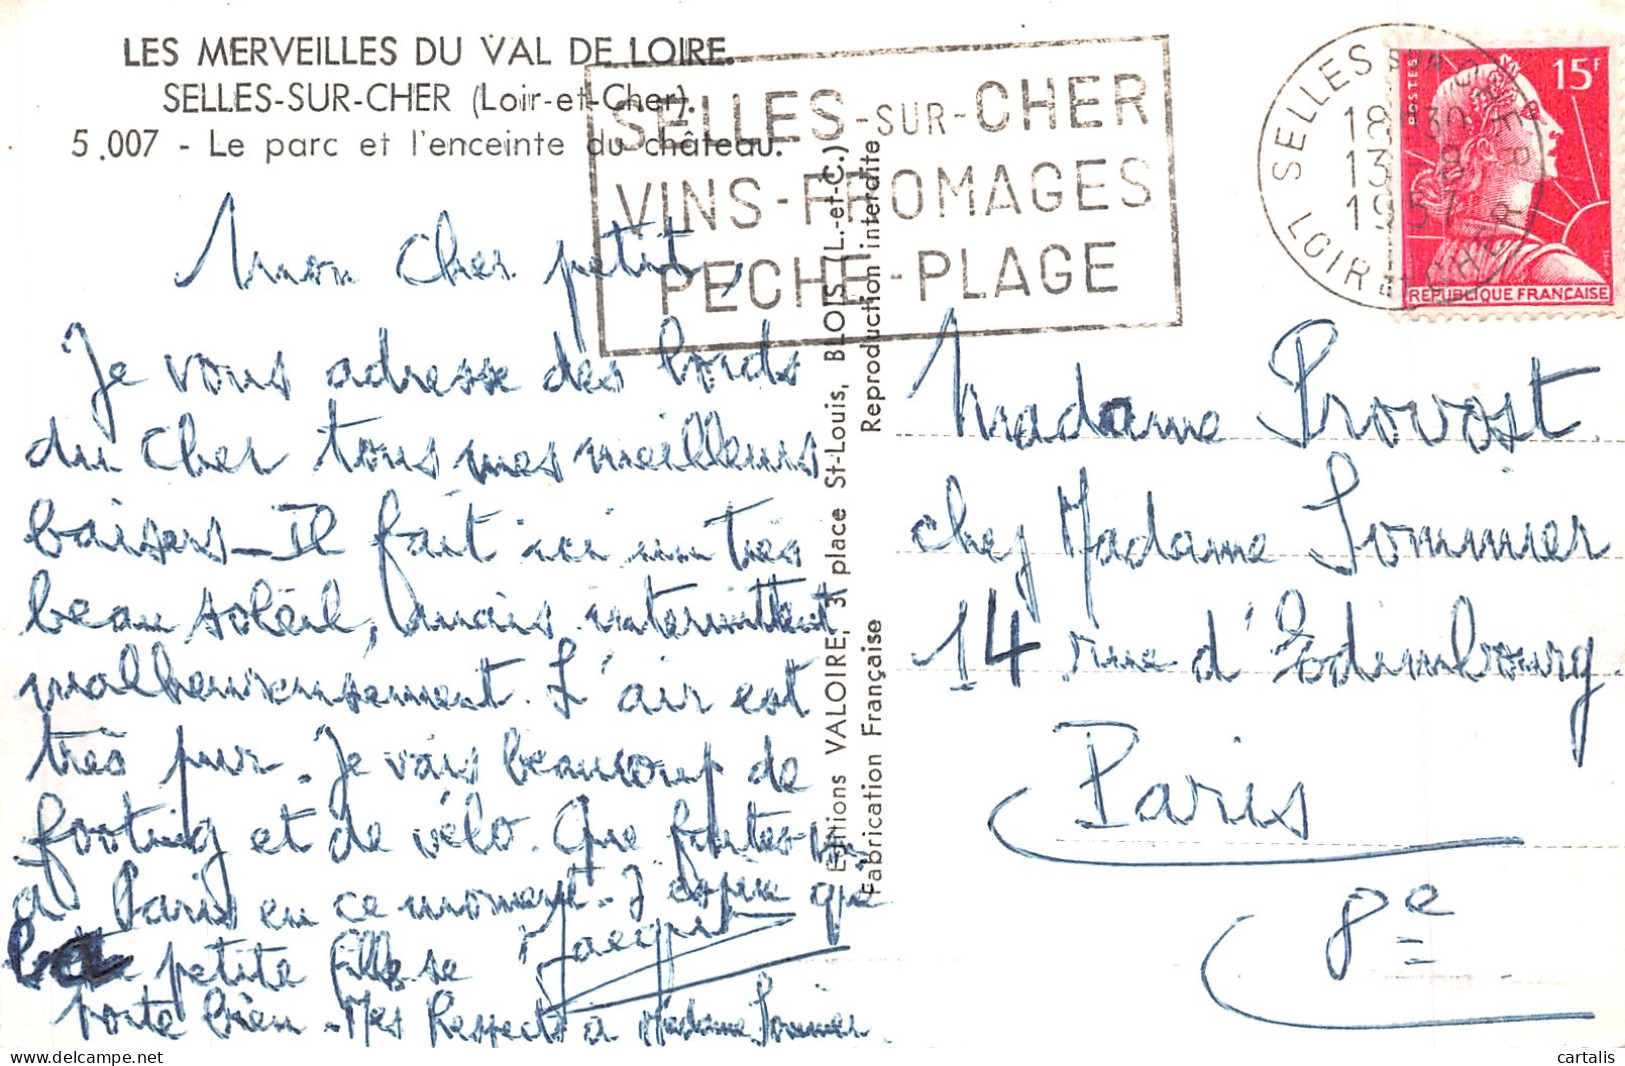 LES MERVEILLES DU VAL DE LOIRE.
SELLES-SUR-CHER (Loir-et-Cher).
5.007 - Le parc et l'enceinte du château.
SELLES-SUR-CHER
VINS-FROMAGES
PECHE-PLAGE
SELLES SUR CHER
18 H 30
13 - 8
1957
LOIR ET CHER
POSTES
15F
REPUBLIQUE FRANÇAISE
Mon Cher petit,
Je vous adresse des bords
du Cher tous mes meilleurs
baisers - Il fait ici un très
beau soleil, mais intermittent
malheureusement. L'air est
très pur. Je vais beaucoup de
footing et de vélo. Que faites-vs
à Paris en ce moment. J'espère que
petite fille se
porte bien - Mes Respects à Madame Sommier.
Jacques
Editions VALOIRE, 3 place St-Louis, BLOIS (L.-et-C.)
Fabrication Française
Reproduction interdite
Madame Provost.
chez Madame Sommier
14 rue d'Edimbourg.
Paris
8e
cartalis